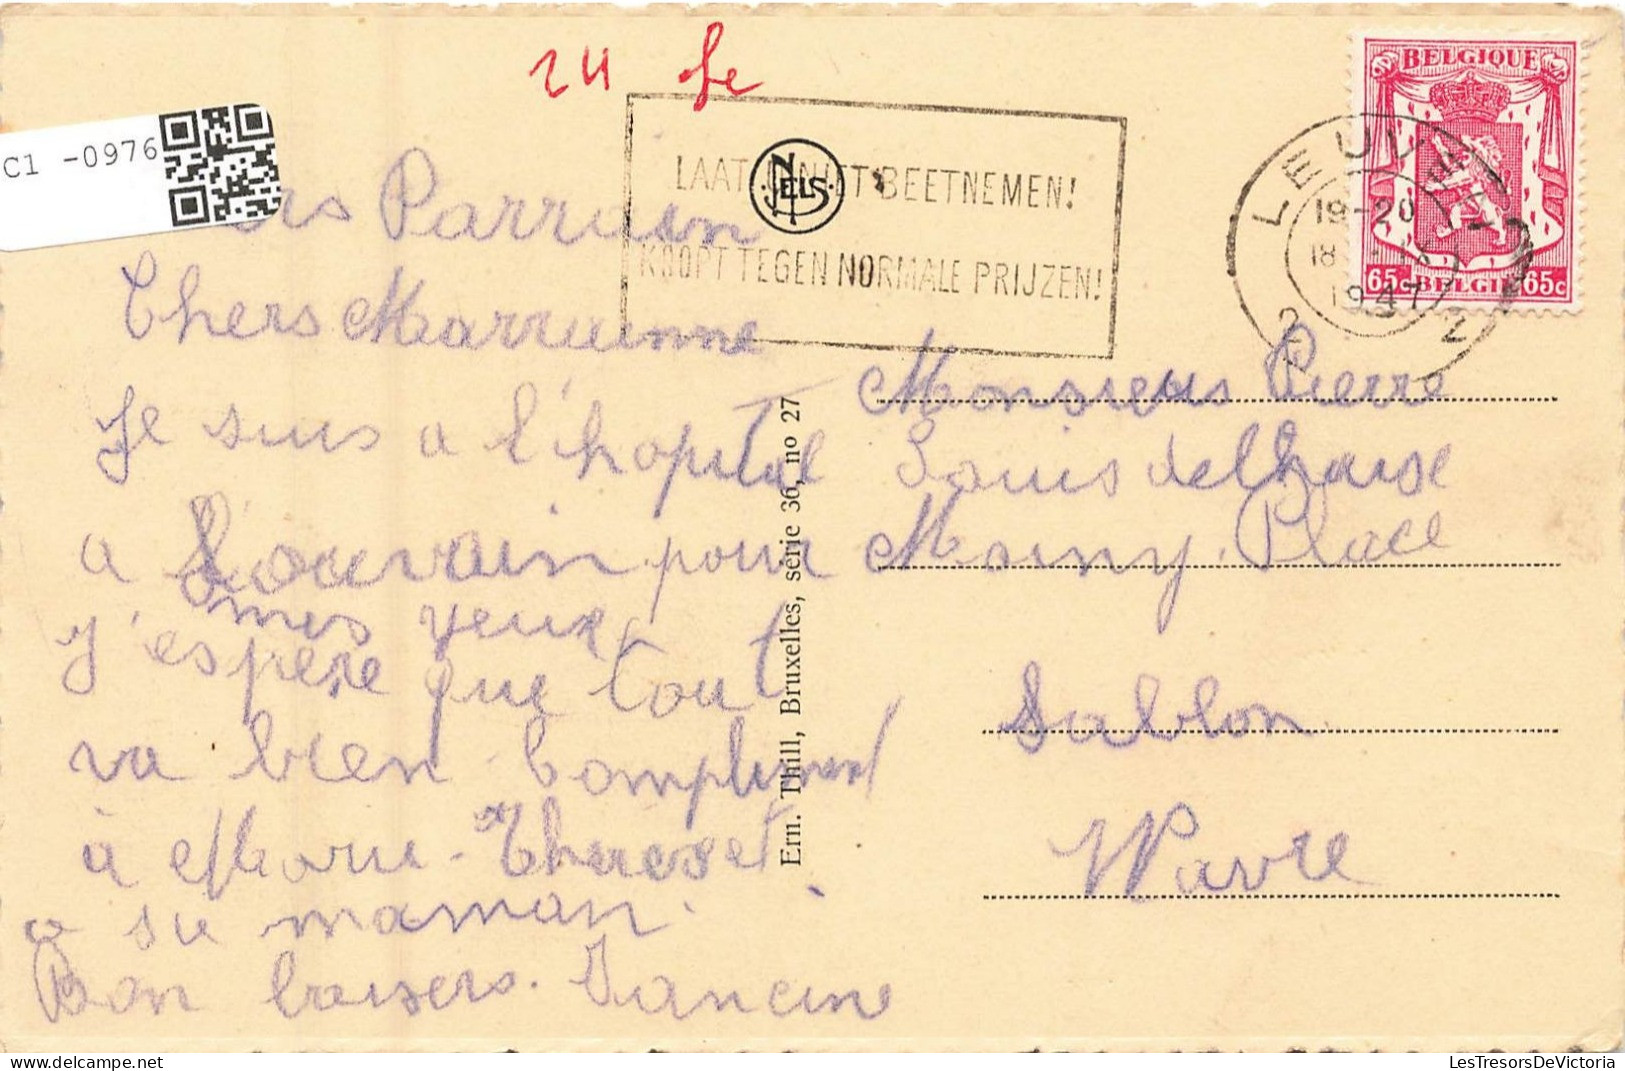 24 fe
C1 -0976
BELGIQUE
65c BELGIE 65c
LEUVEN
19-20
18
1947
2 2
LAAT U NIET BEETNEMEN!
KOOPT TEGEN NORMALE PRIJZEN!
NELS
Parrain
Chers Marrainne
Je suis a l'hopital
a Louvain pour
mes yeux
J'espère que tout
va bien Compliment
à Marie-Therese et
a sa maman.
Bon baisers. Francine
Ern. Thill, Bruxelles, série 36, no 27
Monsieur Pierre
Louis delhaise
Place
Sablon
Wavre
LesTresorsDeVictoria